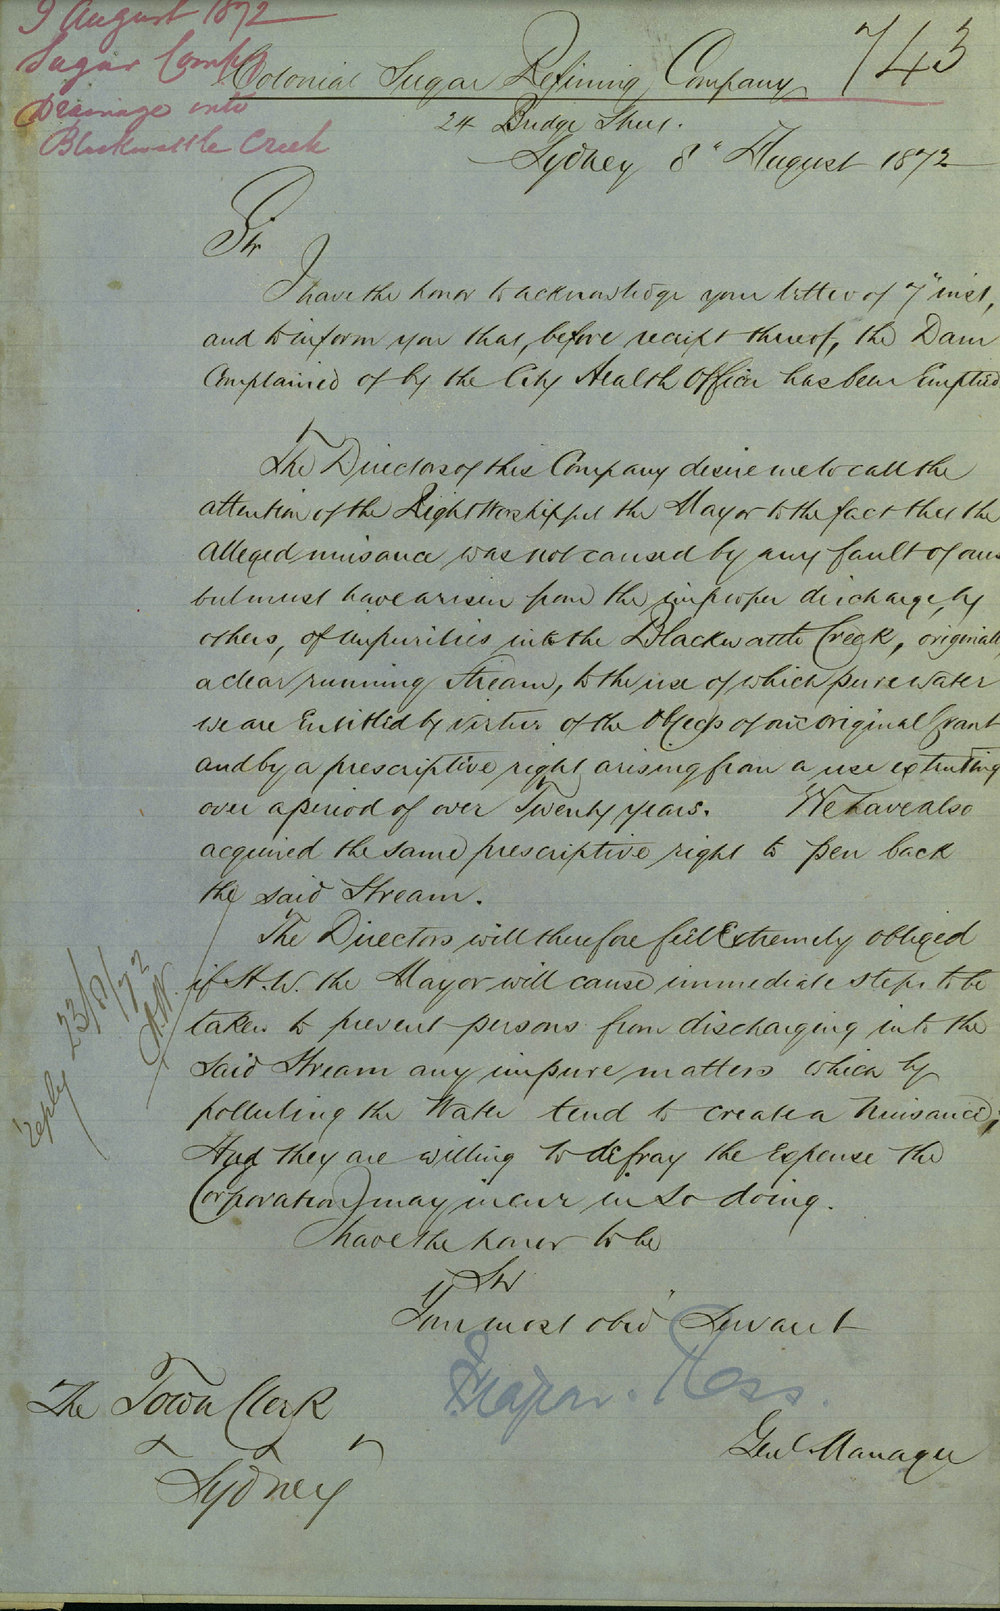 9 August 1872
Sugar Compy
Drainage into
Blackwattle Creek
743
Colonial Sugar Refining Company
24 Bridge Street.
Sydney 8" August 1872
Sir
I have the honor to acknowledge your letter of 7" inst,
and to inform you that, before receipt thereof, the Dam
Complained of by the City Health Officer has been Emptied
The Directors of this Company desire me to call the
attention of the Right Worshipful the Mayor to the fact that the
alleged nuisance was not caused by any fault of ours
but must have arisen from the improper discharge, by
others, of impurities into the Blackwattle Creek, originally
a clear running Stream, to the use of which pure water
we are Entitled by virtue of the Objects of our original Grant
and by a prescriptive right arising from a use extending
over a period of over Twenty years. We have also
acquired the same prescriptive right to pen back
the said Stream.
The Directors will therefore feel Extremely obliged
if R.W. the Mayor will cause immediate steps to be
taken to prevent persons from discharging into the
Said Stream any impure matters which by
polluting the Water tend to create a Nuisance;
And they are willing to defray the Expense the
Corporation may incur in so doing.
I have the honor to be
Sir
Your most obed" Servant
Ross.
Genl Manager
The Town Clerk
Sydney
reply 23/8/72